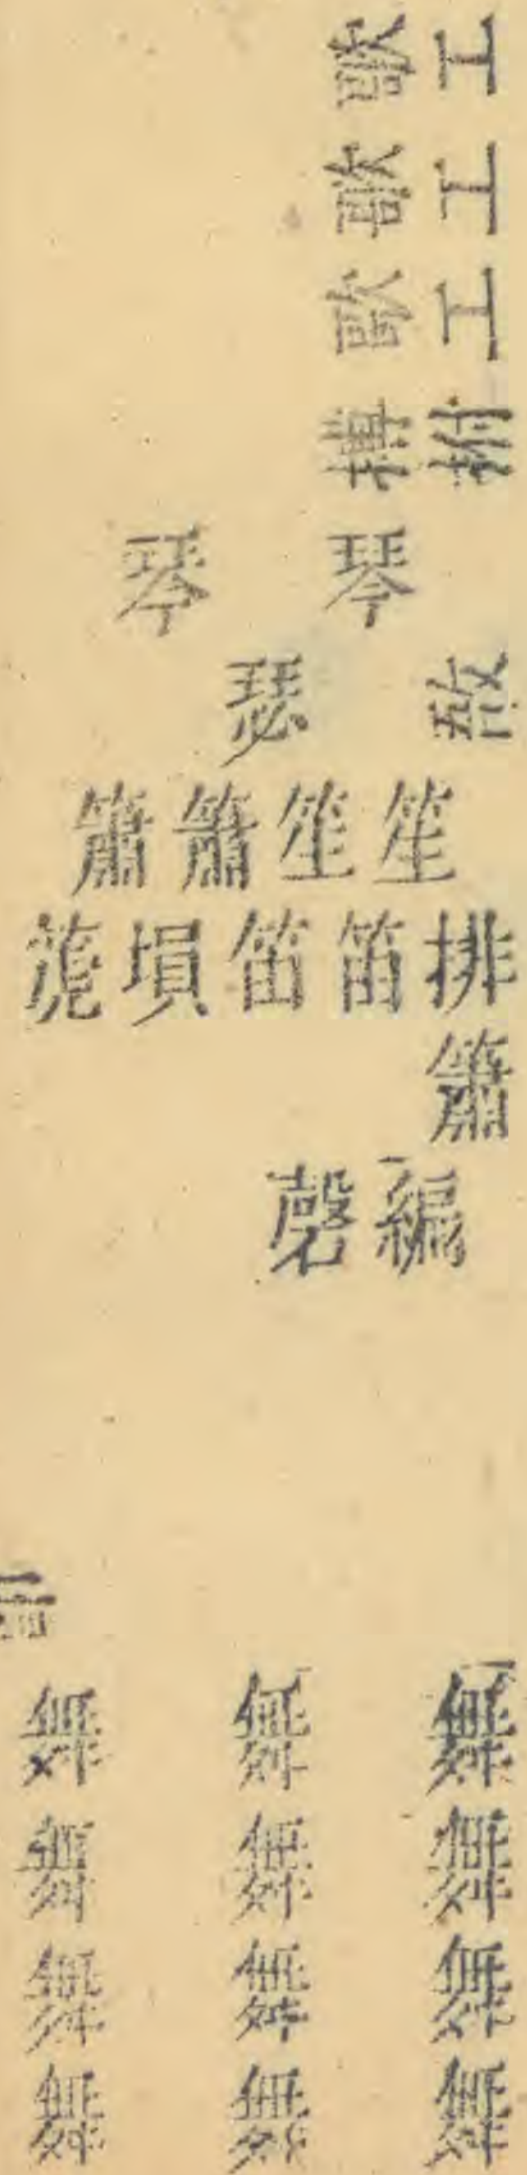 歌工
歌工
歌工
搏拊
琴 琴
敔 瑟
笙 笙 簫 簫
排簫 笛 笛 塤 箎
編磬
舞 舞 舞
舞 舞 舞
舞 舞 舞
舞 舞 舞